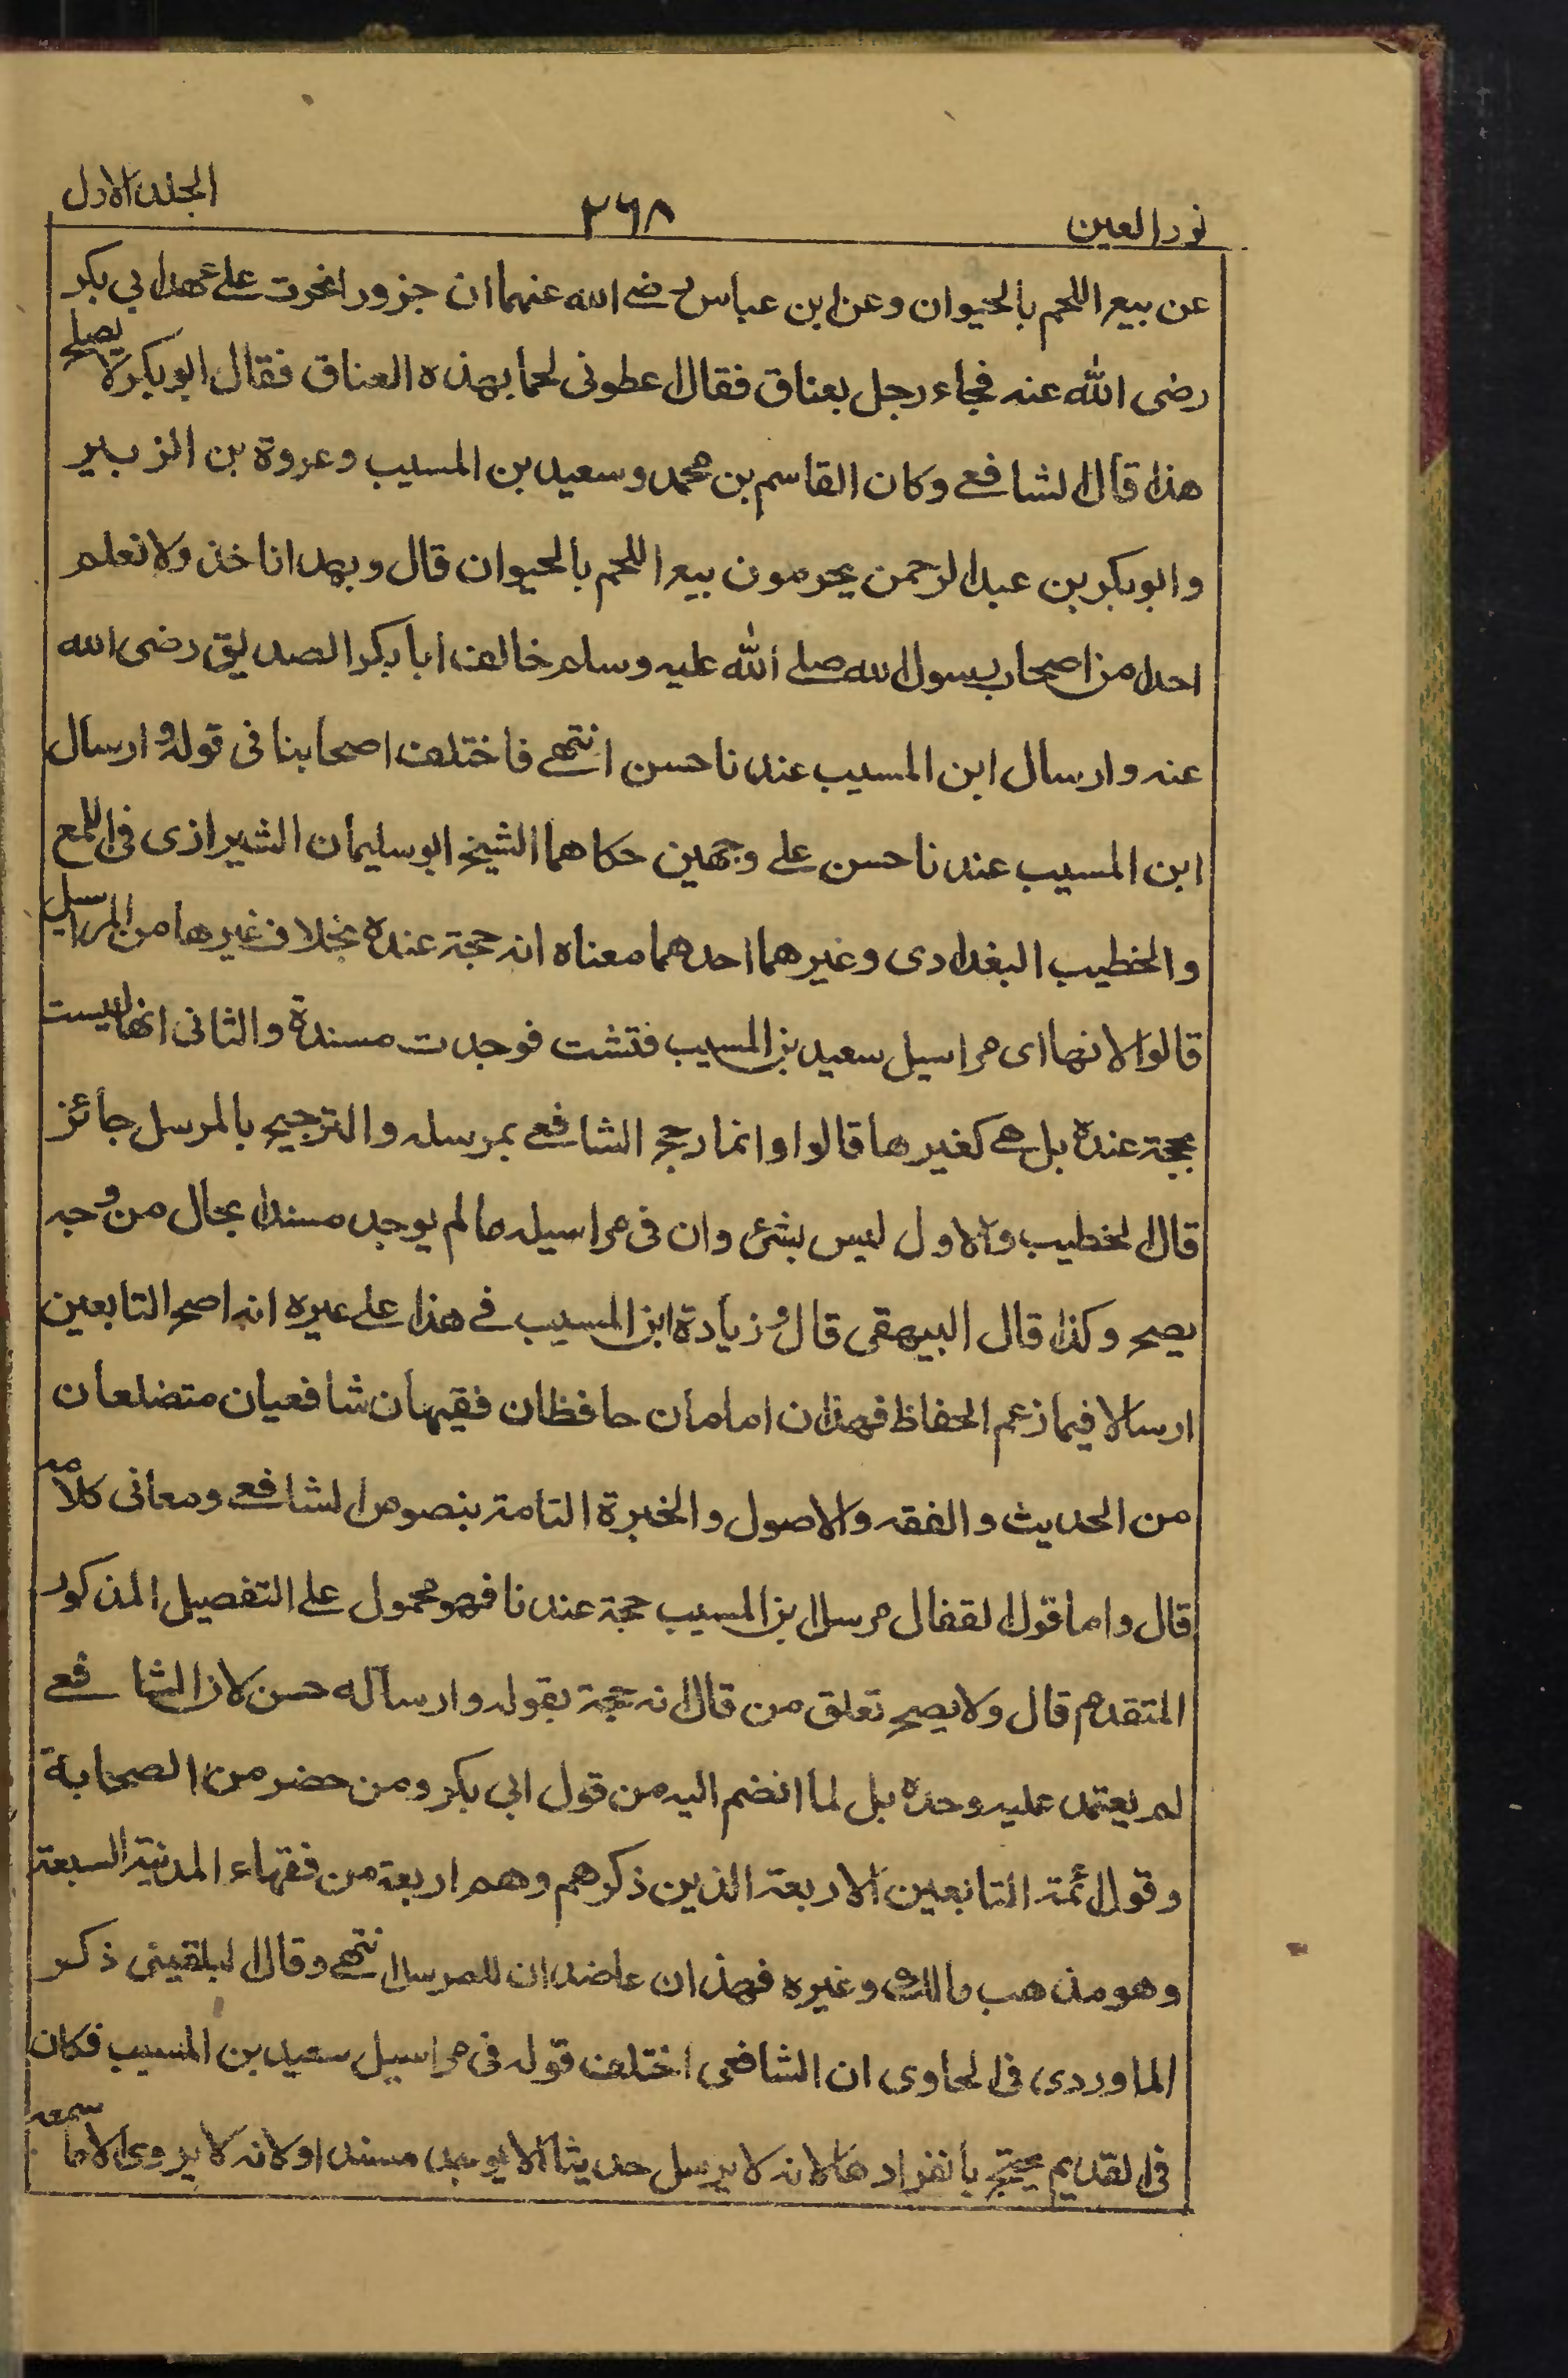 نور العين ٢٦٨ الجلد الاول
عن بيع اللحم بالحيوان وعن ابن عباس رضے الله عنهما ان جزورا نحرت علے عهد ابي بكر
رضى الله عنه فجاء رجل بعناق فقال اعطونى لحما بهذه العناق فقال ابو بكر لا يصلح
هذا قال الشافعے وكان القاسم بن محمد وسعيد بن المسيب وعروة بن الزبير
وابو بكر بن عبد الرحمن يحرمون بيع اللحم بالحيوان قال وبهذا ناخذ ولا نعلم
احدا من اصحاب رسول الله صلے الله عليه وسلم خالف ابا بكر الصديق رضى الله
عنه وارسال ابن المسيب عندنا حسن انتهے فاختلف اصحابنا فى قوله و ارسال
ابن المسيب عندنا حسن علے وجهين حكاهما الشيخ ابو سليمان الشيرازى فى اللمع
والخطيب البغدادى وغيرهما احدهما معناه انه حجة عنده بخلاف غيرها من المراسيل
قالوا لانها اى مراسيل سعيد بن المسيب فتشت فوجدت مسندة والثانى انها ليست
بحجة عنده بل هے كغيرها قالوا وانما رجح الشافعے بمرسله والترجيح بالمرسل جائز
قال الخطيب والاول ليس بشئ وان فى مراسيله ما لم يوجد مسندا بحال من وجه
يصح وكذا قال البيهقى قال و زيادة ابن المسيب فے هذا علے غيره انه اصح التابعين
ارسالا فيما زعم الحفاظ فهذان امامان حافظان فقيهان شافعيان متضلعان
من الحديث والفقه والاصول والخبرة التامة بنصوص الشافعے ومعانى كلامه
قال واما قول القفال مرسل ابن المسيب حجة عندنا فهو محمول علے التفصيل المذكور
المتقدم قال ولا يصح تعلق من قال انه حجة بقوله وارساله حسن لان الشافعے
لم يعتمد عليه وحده بل لما انضم اليه من قول ابى بكر ومن حضر من الصحابة
وقول ائمة التابعين الاربعة الذين ذكرهم وهم اربعة من فقهاء المدينة السبعة
وهو مذهب مالك وغيره فهذان عاضدان للمرسل انتهے وقال البلقينى ذكر
الماوردى فى الحاوى ان الشافعى اختلف قوله فى مراسيل سعيد بن المسيب فكان
فى القديم يحتج بانفرادها لانه لا يرسل حديثا الا يوجد مسندا ولانه لا يروى الا ما سمعه